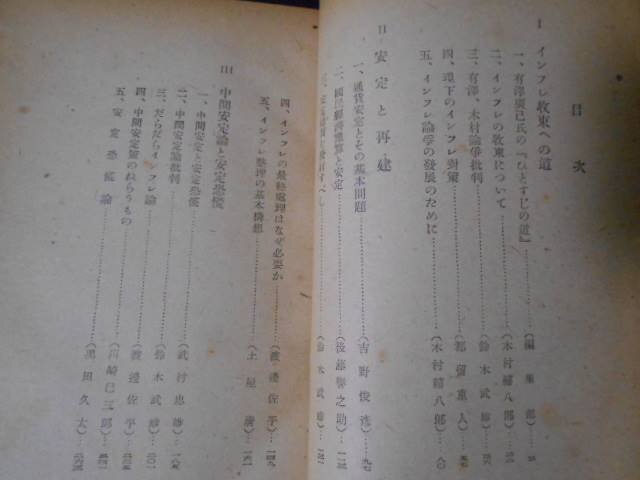 目次
I インフレ收束への道
一、有澤廣己氏の『ひとすじの道』……(編集部)…
二、インフレの收束について……(木村禧八郎)…
三、有澤、木村論爭批判……(鈴木武雄)…
四、現下のインフレ對策……(都留重人)…
五、インフレ論爭の發展のために……(木村禧八郎)…八〇
II 安定と再建
一、通貨安定とその基本問題……(吉野俊彦)…九七
二、國民經濟豫算と安定……(後藤譽之助)…一一三
(鈴木武雄)…
四、インフレの最終處理はなぜ必要か……(渡邊佐平)…一四九
五、インフレ整理の基本構想……(土屋清)…一六一
III 中間安定論と安定恐慌
一、中間安定と安定恐慌……(武村忠雄)…一八七
二、中間安定論批判……(鈴木武雄)…二〇一
三、だらだらインフレ論……(渡邊佐平)…
四、中間安定策のねらうもの……(川崎巳三郎)…二四一
五、安定恐慌論……(黒田久太)…二六三